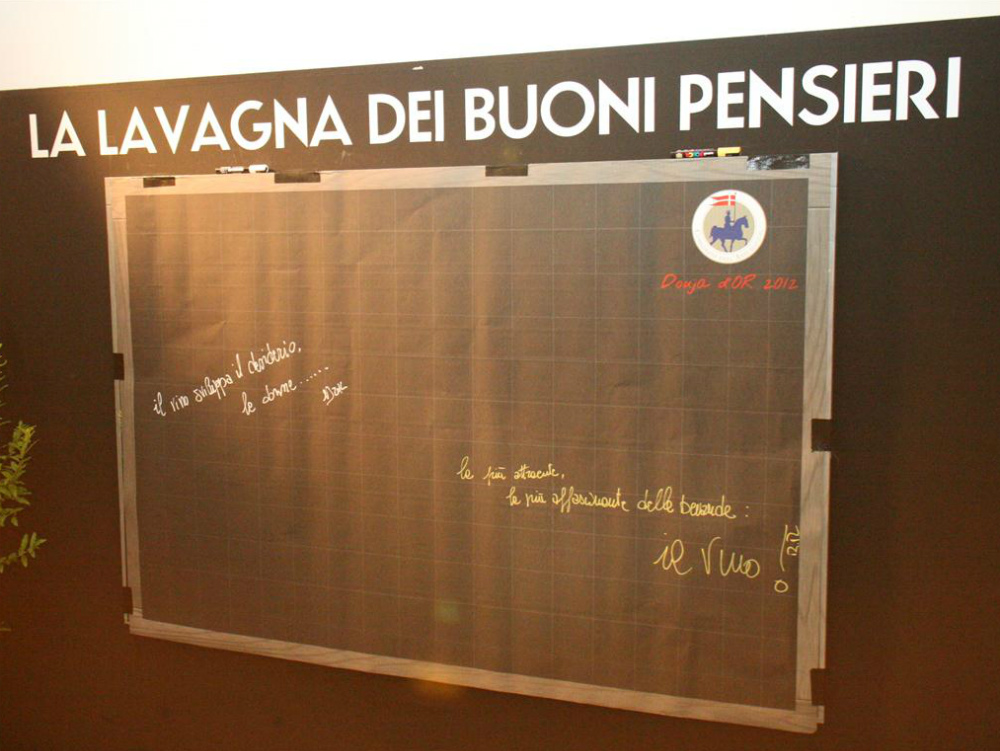 LA LAVAGNA DEI BUONI PENSIERI
Douja d'OR 2012
il vino sviluppa il desiderio,
le donne......
la più attraente,
la più affascinante delle bevande:
il vino!